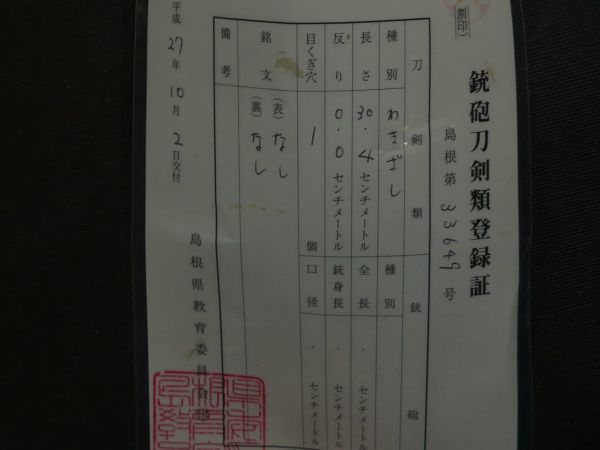 (割印)
銃砲刀剣類登録証
島根第 33649 号
刀剣類
銃砲
種別 わきざし
種別
長さ 30.4 センチメートル
全長 . センチメートル
反り 0.0 センチメートル
銃身長 . センチメートル
目くぎ穴 1 個
口径 . センチメートル
銘文 (表) なし
(裏) なし
備考
平成 27 年 10 月 2 日交付
島根県教育委員会